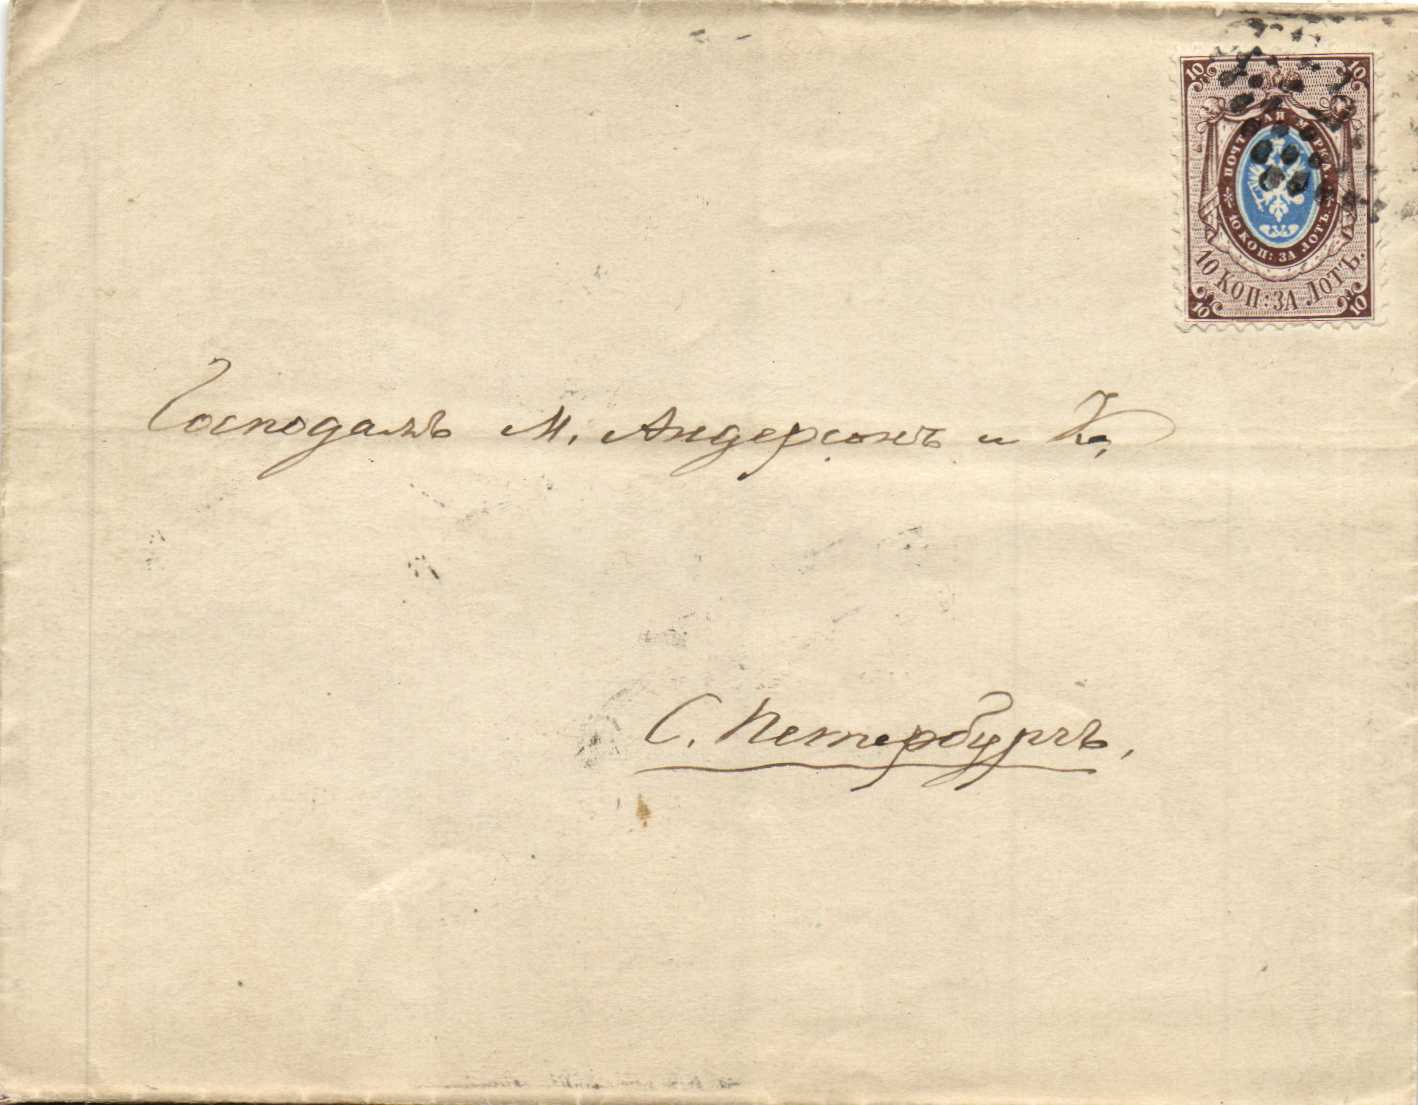 10 10
ПОЧТОВАЯ МАРКА
10 КОП: ЗА ЛОТЪ.
10 КОП: ЗА ЛОТЪ.
10 10
Господамъ М. Андерсонъ и Ко,
С. Петербургъ,